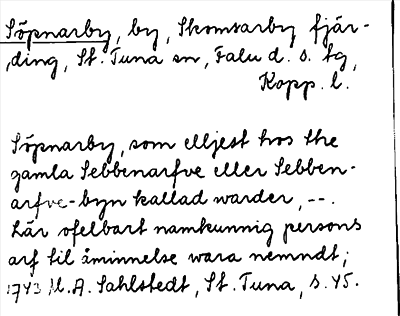 Söpnarby, by, Skomsarby fjär-
ding, St. Tuna sn, Falu d. s. tg,
Kopp. l.
Söpnarby, som elljest hos the
gamla Sebbenarfve eller Sebben-
arfve-byn kallad warder, --.
Lär ofelbart namkunnig persons
arf til åminnelse wara nemndt;
1743 A. Sahlstedt, St. Tuna, s. 45.